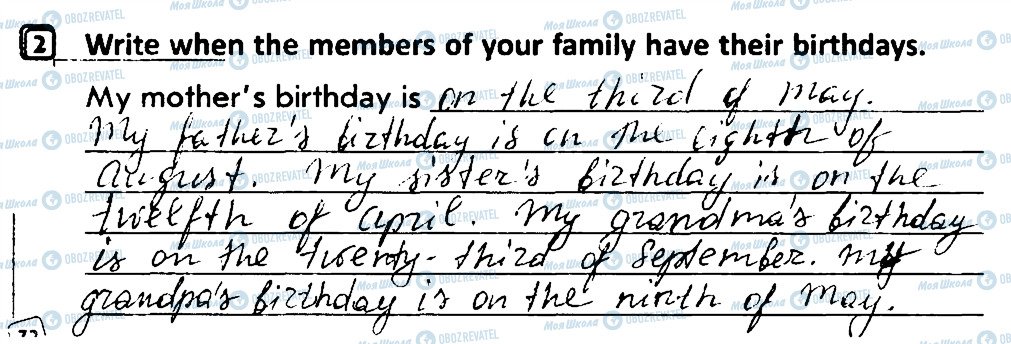 2 Write when the members of your family have their birthdays.
My mother's birthday is on the third of May.
My father's birthday is on the eighth of
August. My sister's birthday is on the
twelfth of April. My grandma's birthday
is on the twenty-third of September. My
grandpa's birthday is on the ninth of May.
72
Моя Школа OBOZREVATEL